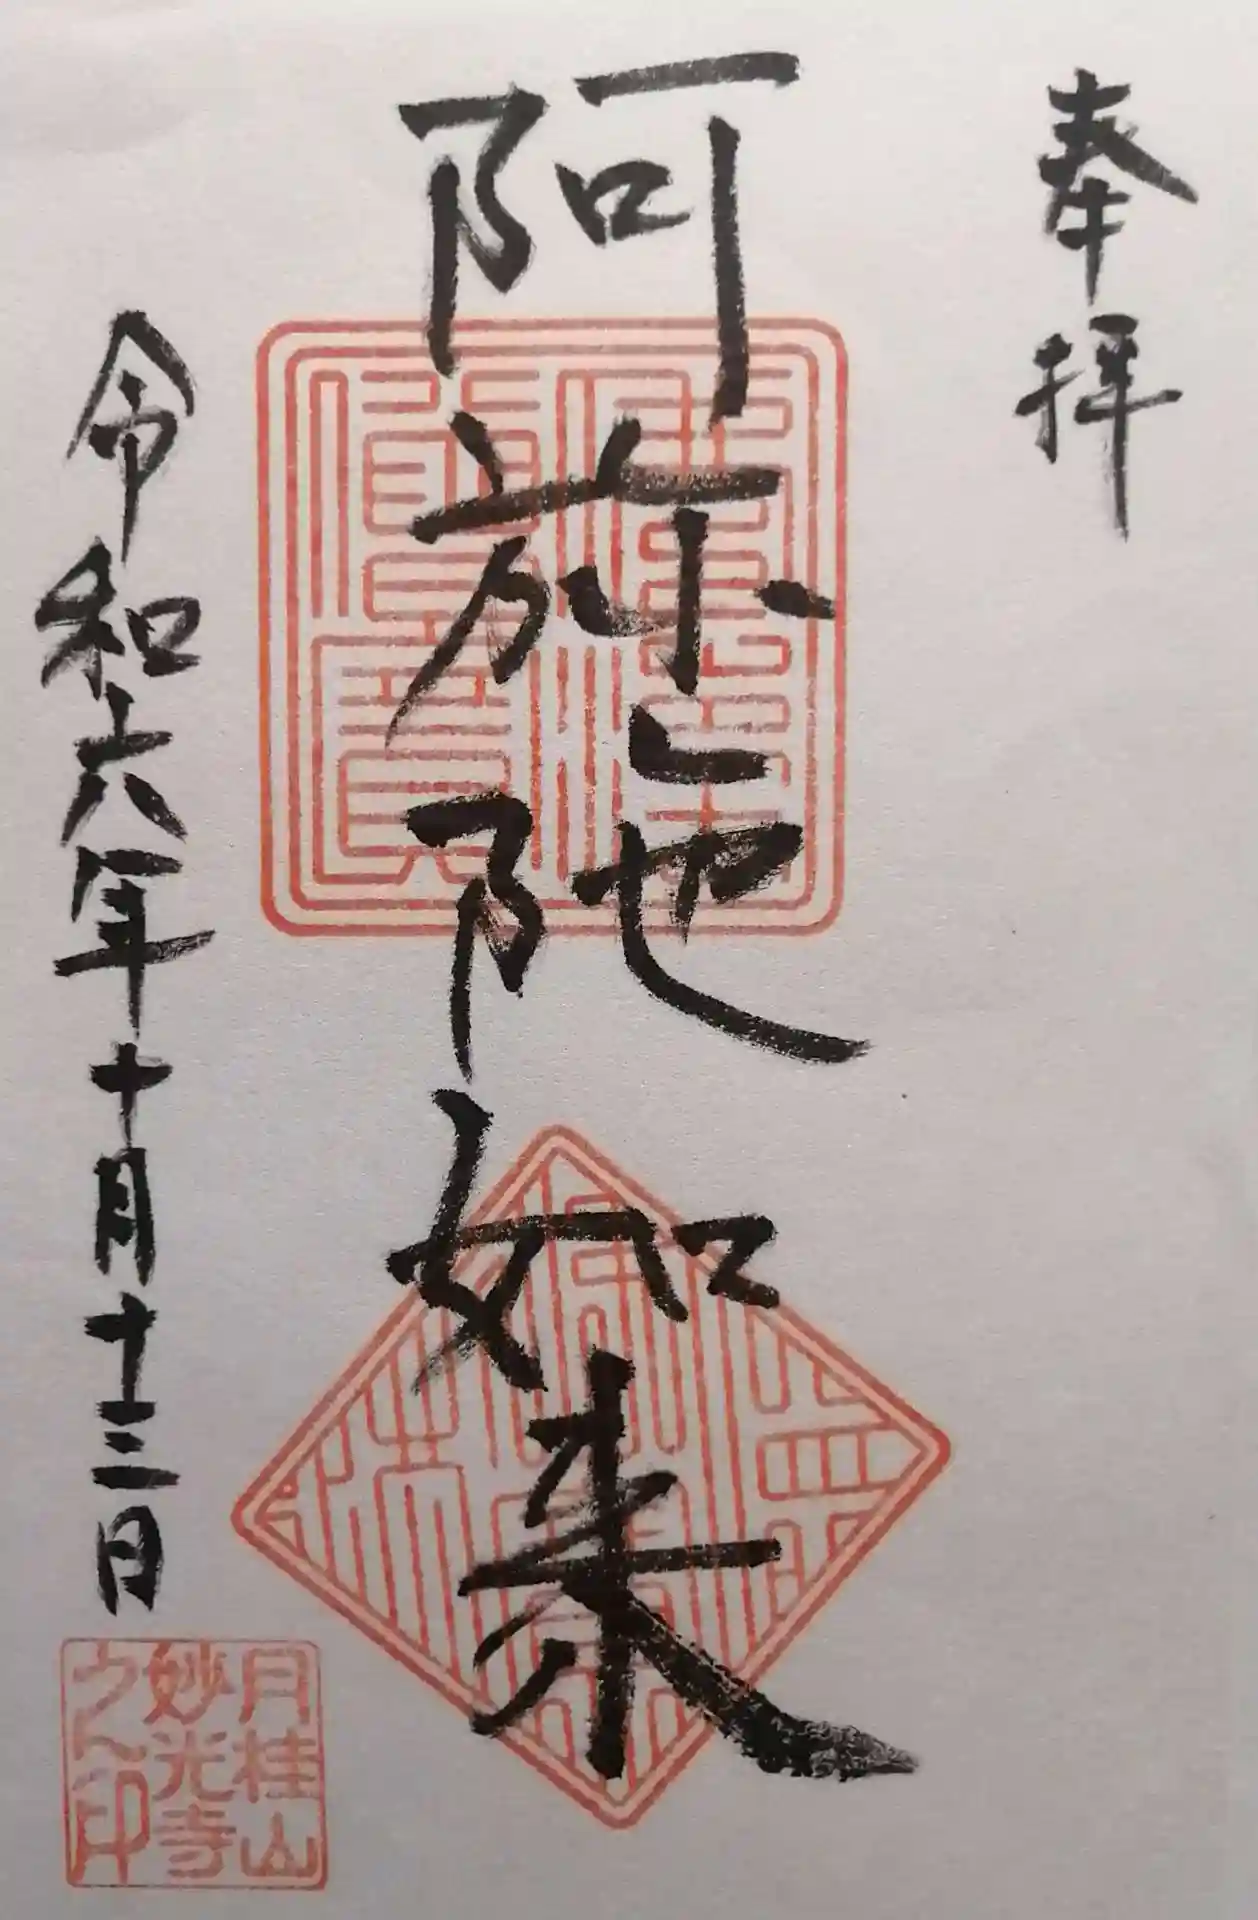 奉拝
阿弥陀如来
令和六年十月十三日
月桂山
妙光寺
之印